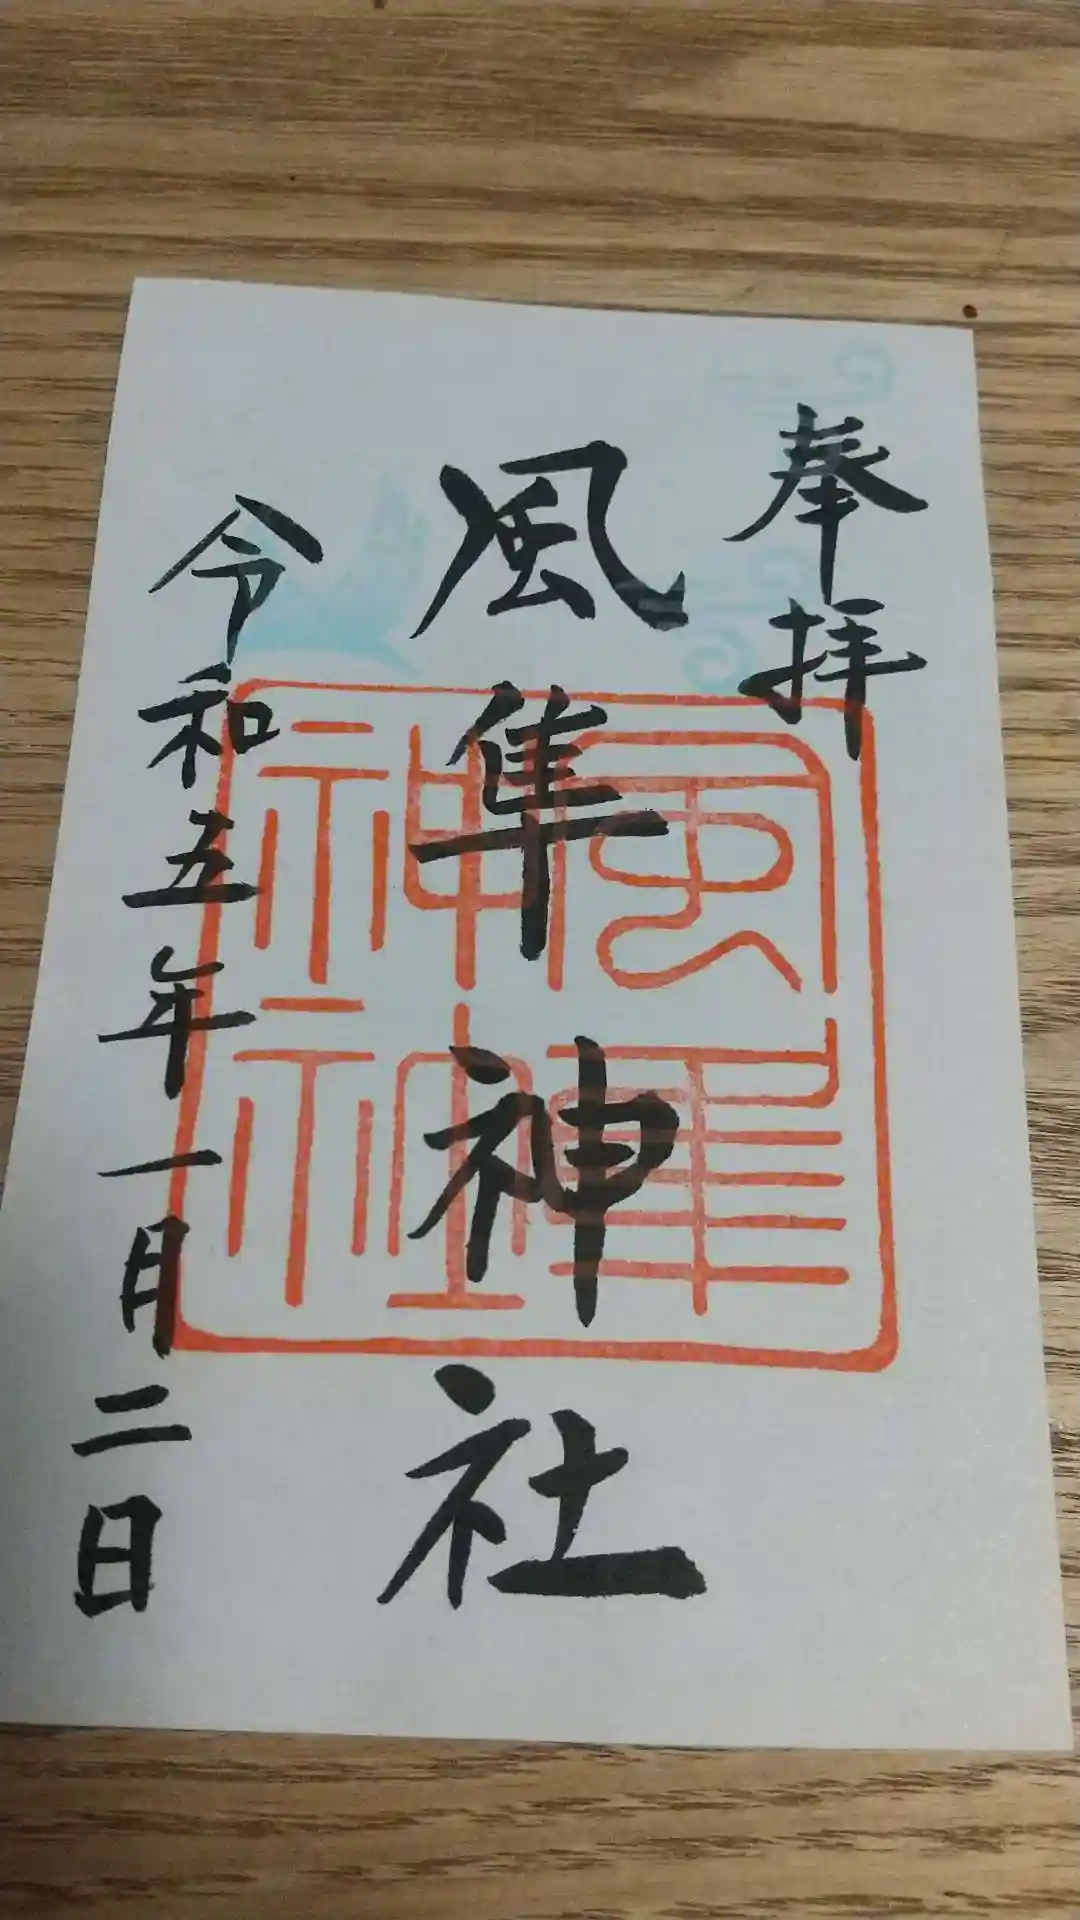 奉拝
風隼神社
風隼神社
令和五年一月二日